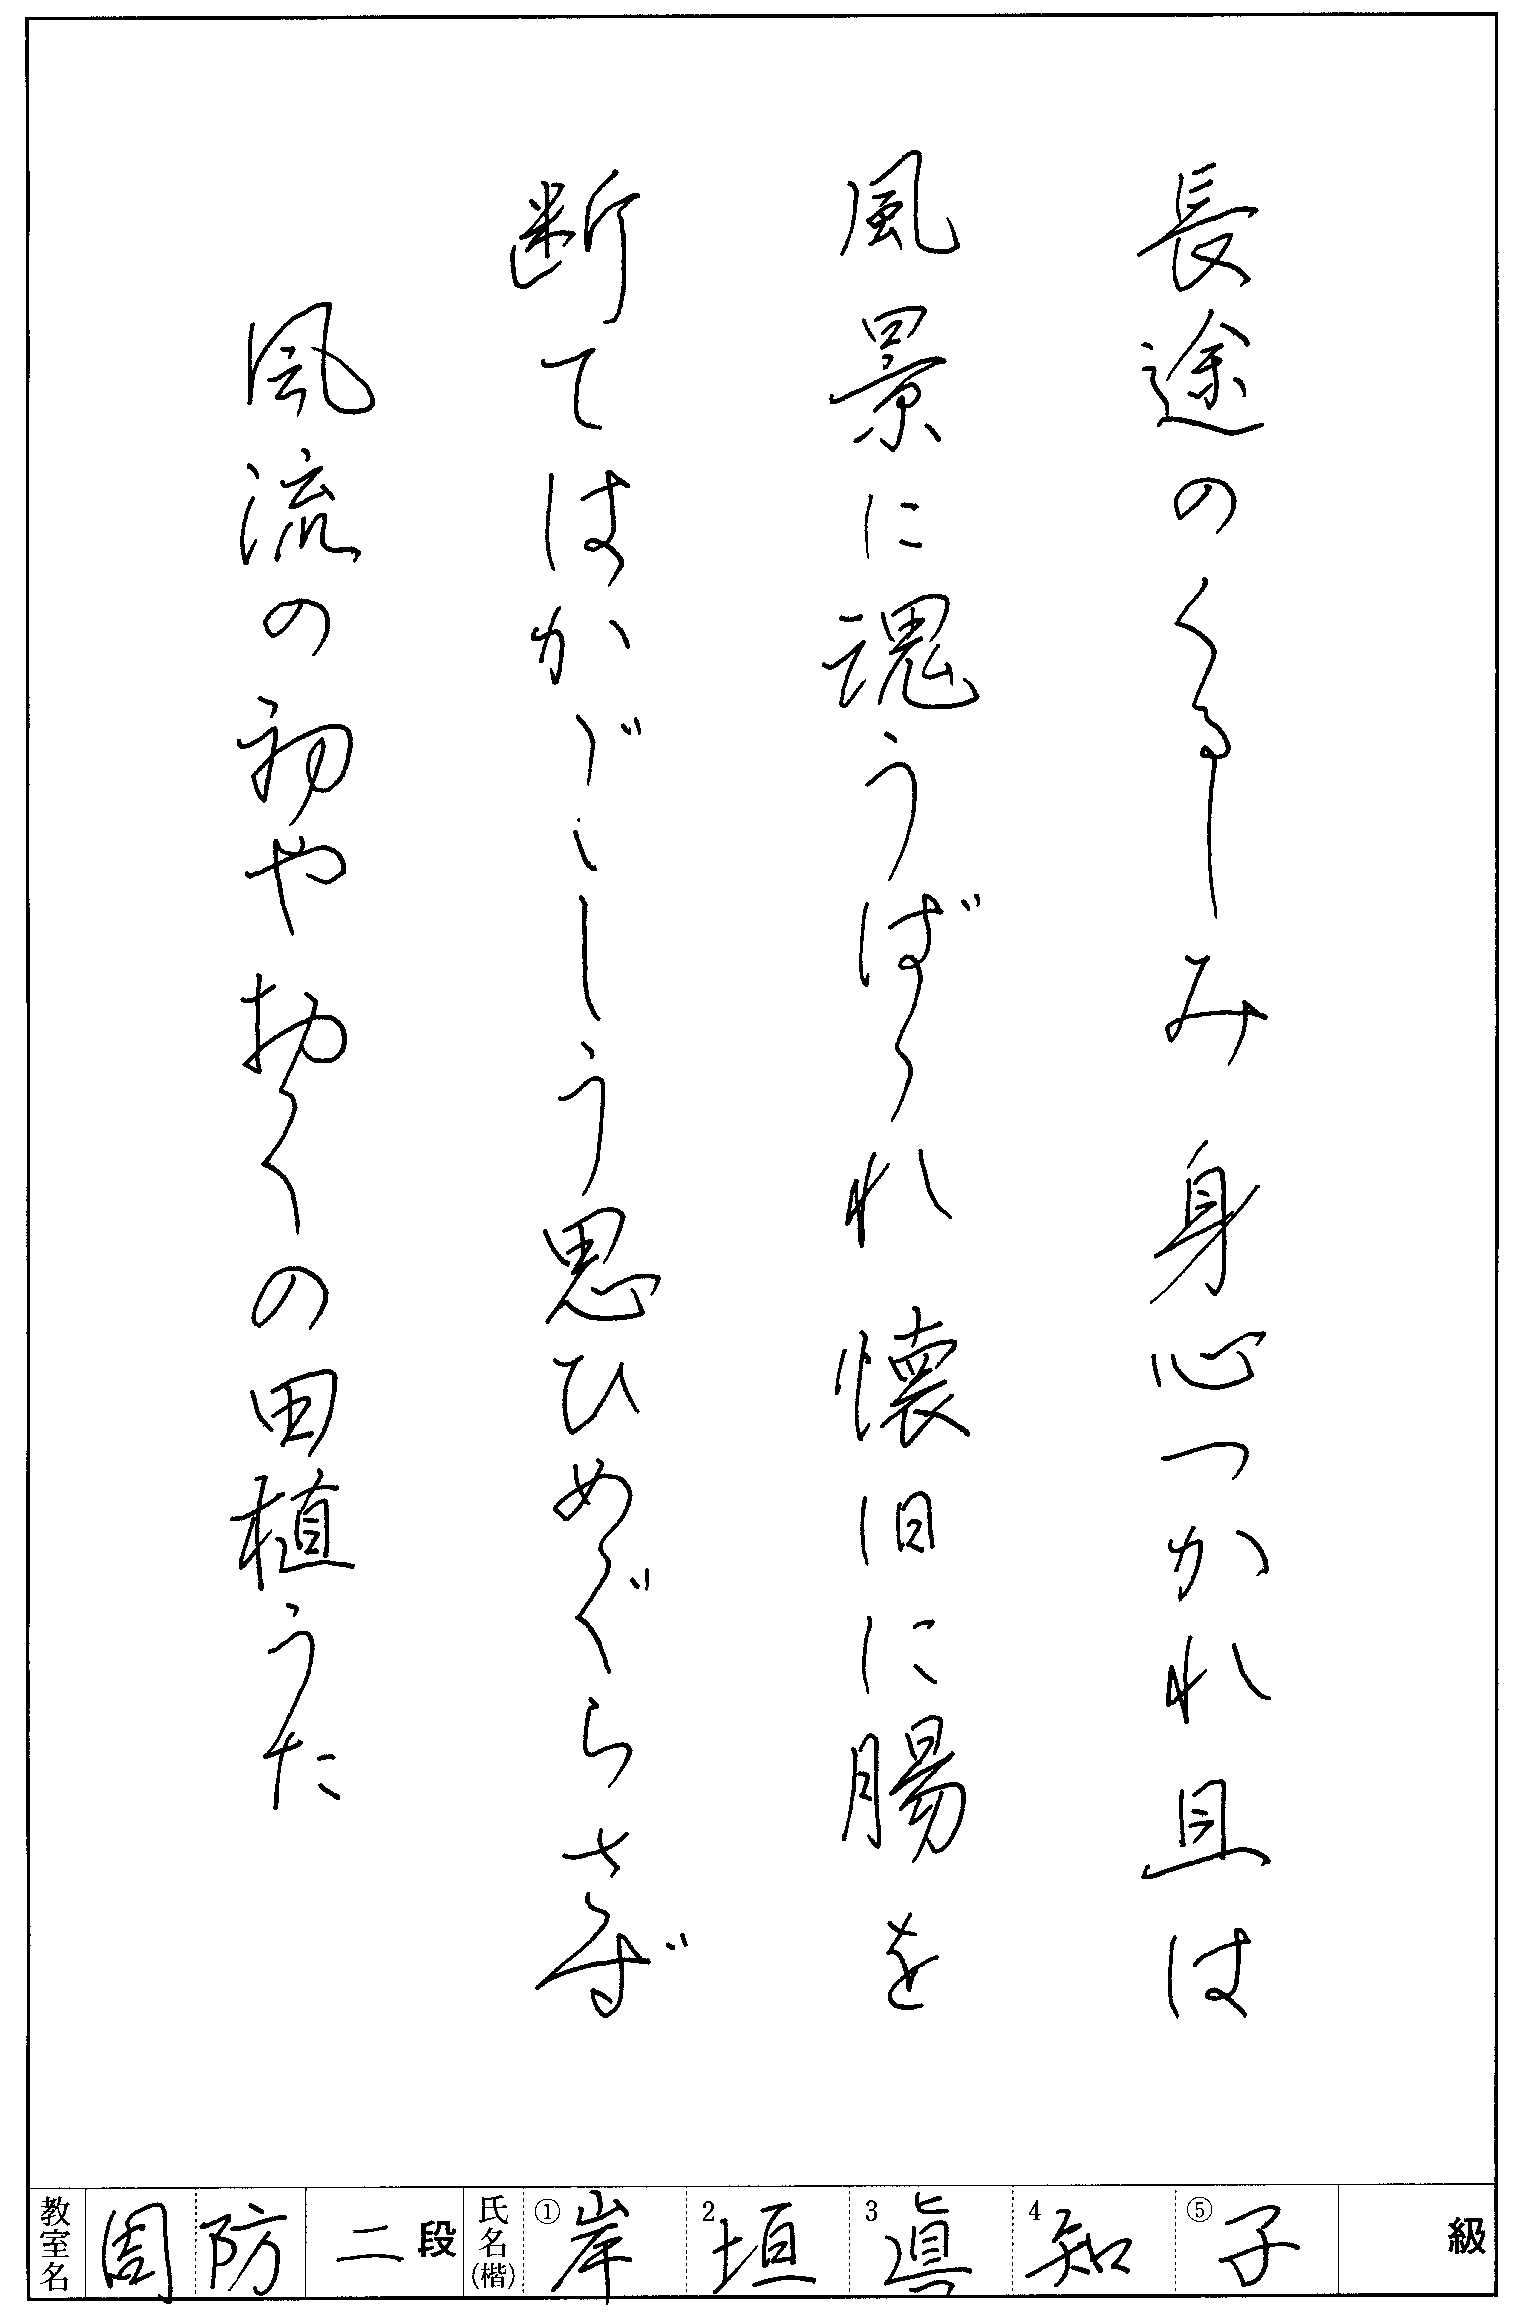 長途のくるしみ身心つかれ且は
風景に魂うばゝれ懐旧に腸を
断てはかばゝしう思ひめぐらさず
風流の初やおくの田植うた
教室名 周防 二段 氏名(楷) ①岸 2垣 3眞 4知 ⑤子 級